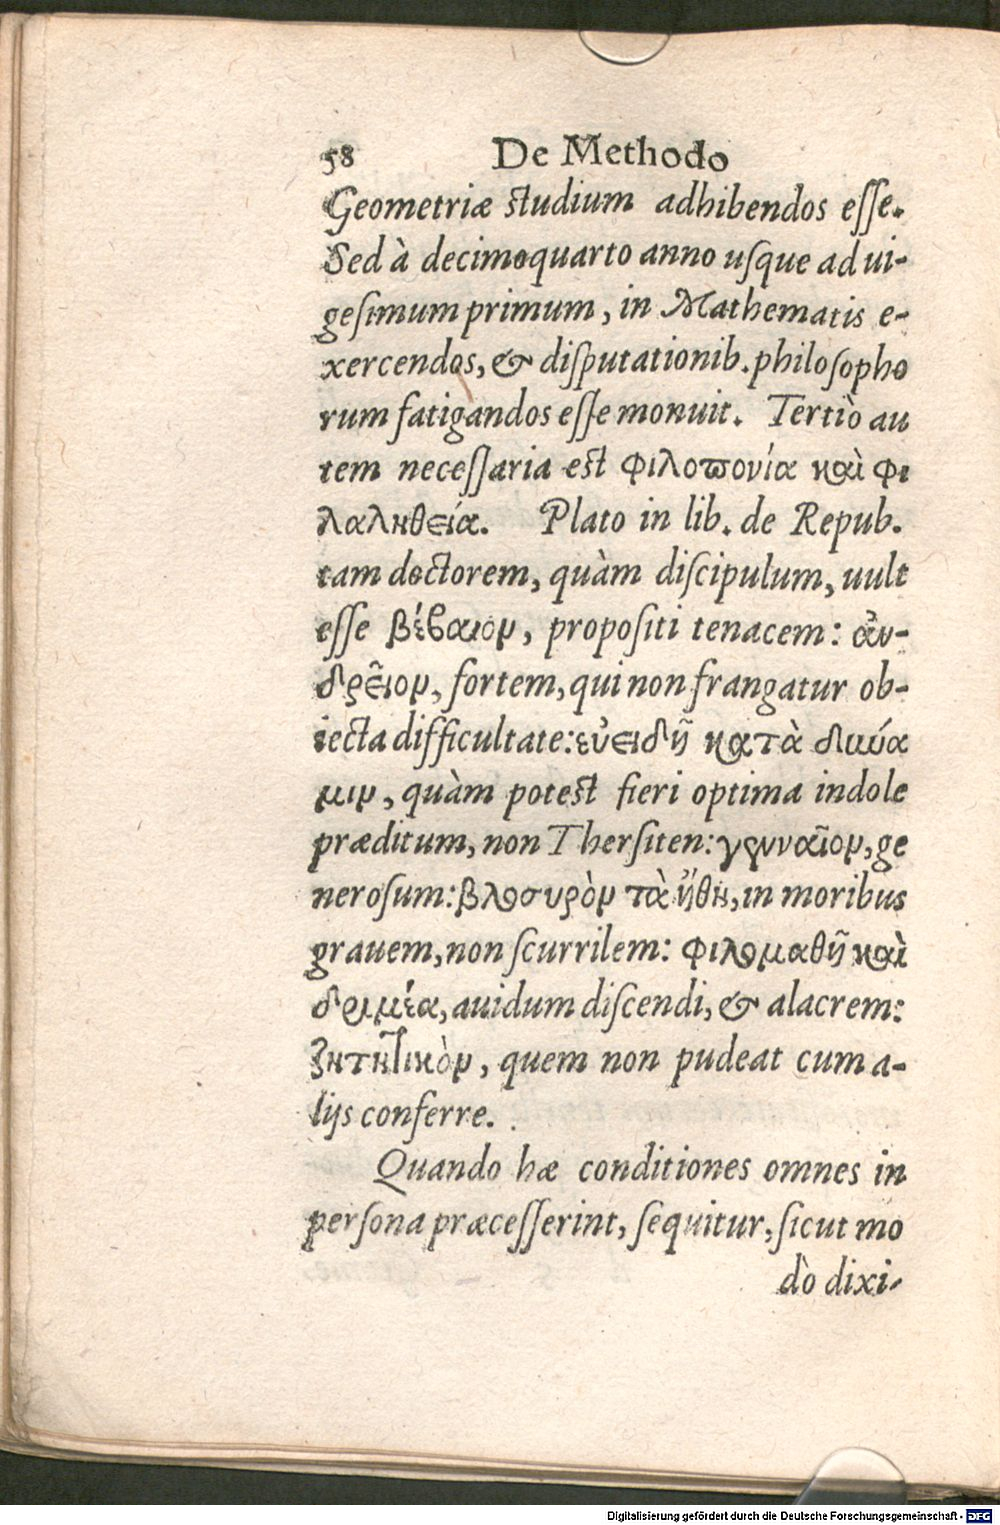 58 De Methodo
Geometriæ studium adhibendos esse.
Sed à decimoquarto anno usque ad ui-
gesimum primum, in Mathematis e-
xercendos, & disputationib. philosopho
rum fatigandos esse monuit. Tertiò au
tem necessaria est φιλοπονία καὶ φι
λαληθεία. Plato in lib. de Repub.
tam doctorem, quàm discipulum, uult
esse βέβαιον, propositi tenacem: ἀν-
δρεῖον, fortem, qui non frangatur ob-
iecta difficultate: εὐειδῆ κατὰ δύνα
μιν, quàm potest fieri optima indole
præditum, non Thersiten: γενναῖον, ge
nerosum: βλοσυρὸν τὰ ἤθη, in moribus
grauem, non scurrilem: φιλομαθῆ καὶ
δριμέα, auidum discendi, & alacrem:
ζητητικὸν, quem non pudeat cum a-
lijs conferre.
Quando hæ conditiones omnes in
persona præcesserint, sequitur, sicut mo
dò dixi-
Digitalisierung gefördert durch die Deutsche Forschungsgemeinschaft - DFG